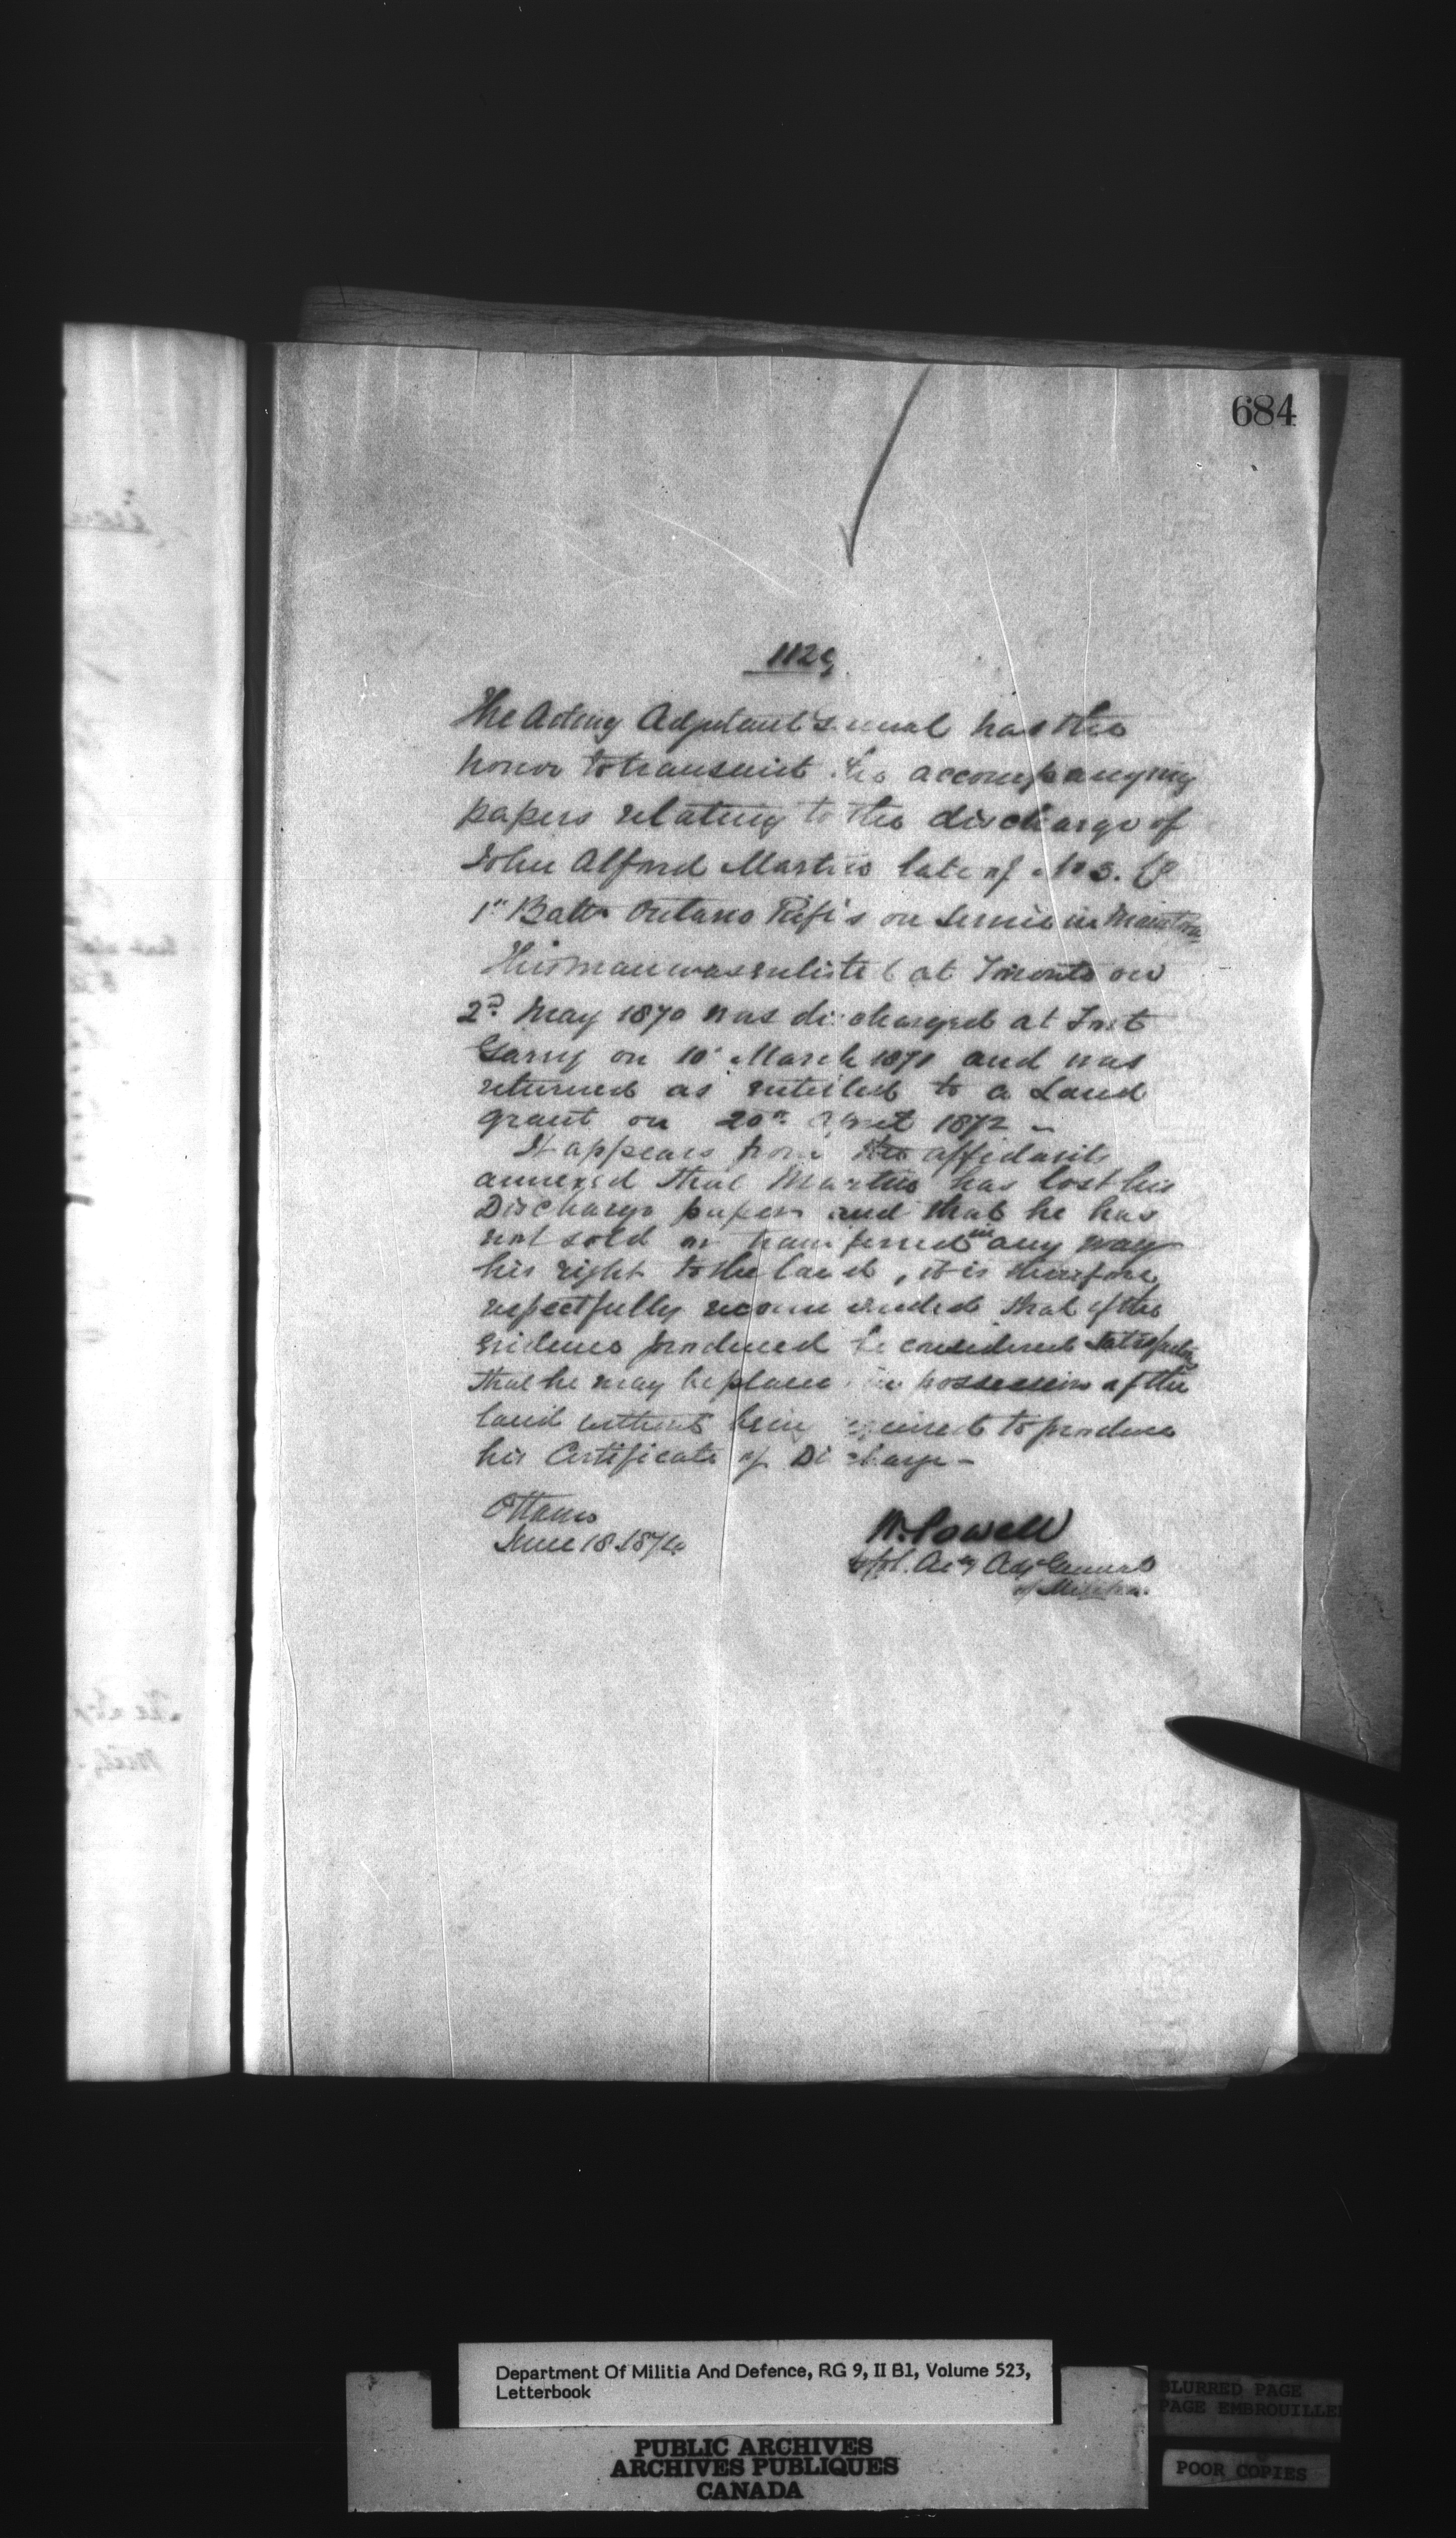 684
1129
The Acting Adjutant General has the
honor to transmit the accompanying
papers relating to the discharge of
John Alford Martin late of No 3. Co
1st Battn Ontario Rifles on service in Manitoba
This man was enlisted at Toronto on
2d May 1870 was discharged at Fort
Garry on 10th March 1871 and was
returned as entitled to a Land
grant on 20th April 1872 -
It appears from the affidavits
annexed that Martin has lost his
Discharge papers and that he has
not sold or transferred in any way
his right to the land, it is therefore
respectfully recommended that if the
evidence produced be considered satisfactory
that he may be placed in possession of the
land without being required to produce
his Certificate of Discharge -
Ottawa
June 18 1874
W. Powell
Lt Col. Actg Adjt General
of Militia.
Department Of Militia And Defence, RG 9, II B1, Volume 523,
Letterbook
PUBLIC ARCHIVES
ARCHIVES PUBLIQUES
CANADA
BLURRED PAGE
PAGE EMBROUILLE
POOR COPIES